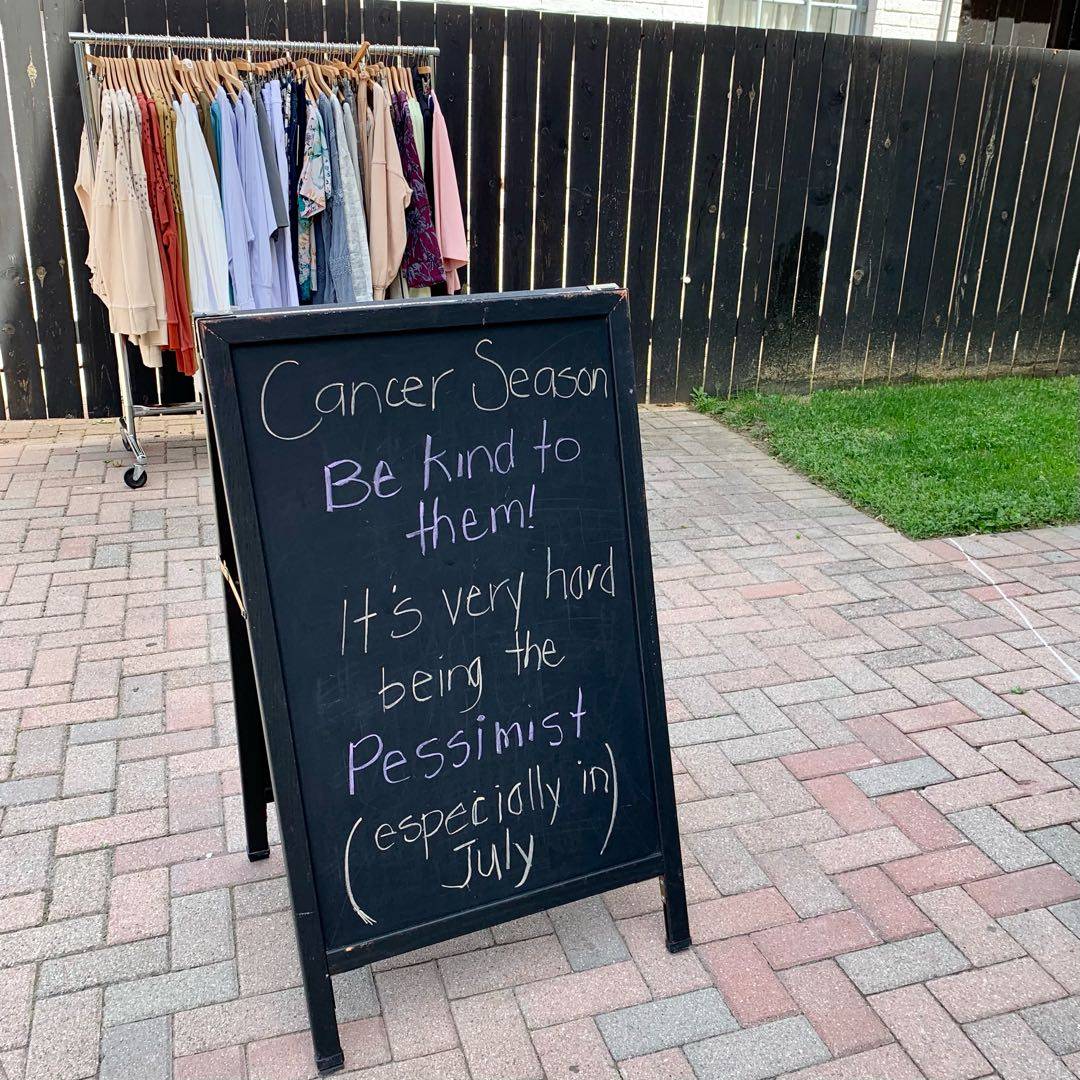 Cancer Season
Be kind to
them!
It's very hard
being the
Pessimist
(especially in)
July